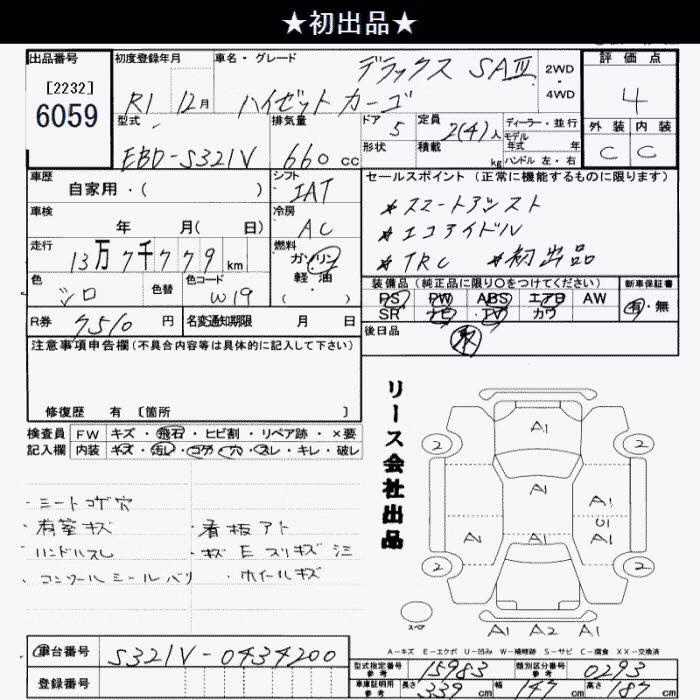 ★初出品★
出品番号 初度登録年月 車名・グレード 評価点
[2232]
6059
R1 12月 デラックス SAⅢ 2WD・4WD
ハイゼットカーゴ 4
型式 排気量 ドア 定員 ディーラー・並行 外装 内装
5 2(4)人 モデル年式 年
EBD-S321V 660cc 形状 積載 kg ハンドル 左・右 C C
車歴 シフト セールスポイント (正常に機能するものに限ります)
自家用・( ) IAT
*スマートアシスト
車検 冷房
年 月( 日) AC *エコアイドル
走行 燃料
13万7千779km ガソリン *TRC *初出品
軽・油
( )
色 色替 色コード 装備品(純正品に限り○をつけてください) 新車保証書
シロ W19 PS PW ABS エアB AW 有・無
SR ナビ TV カワ
R券 7510円 名変通知期限 月 日 後日品 取
注意事項申告欄(不具合内容等は具体的に記入して下さい)
修復歴 有 [箇所 ]
リース会社出品
検査員 FW キズ・飛石・ヒビ割・リペア跡・×要
記入欄 内装 キズ・汚レ・コゲ・穴・スレ・キレ・破レ
・シートコゲ穴
・荷室キズ ・看板アト
・ハンドルスレ
・ホイールキズ
A1
2 2
A1 A1
U1
A A1 A1
2 2
スペア A1 A2 A1
A-キズ E-エクボ U-凹み W-補修跡 S-サビ C-腐食 XX-交換済
車台番号 S321V-0434200
型式指定番号 参考 15983 類別区分番号 参考 0293
登録番号
車庫証明用 参考 長さ 339cm 幅 147cm 高さ 187cm